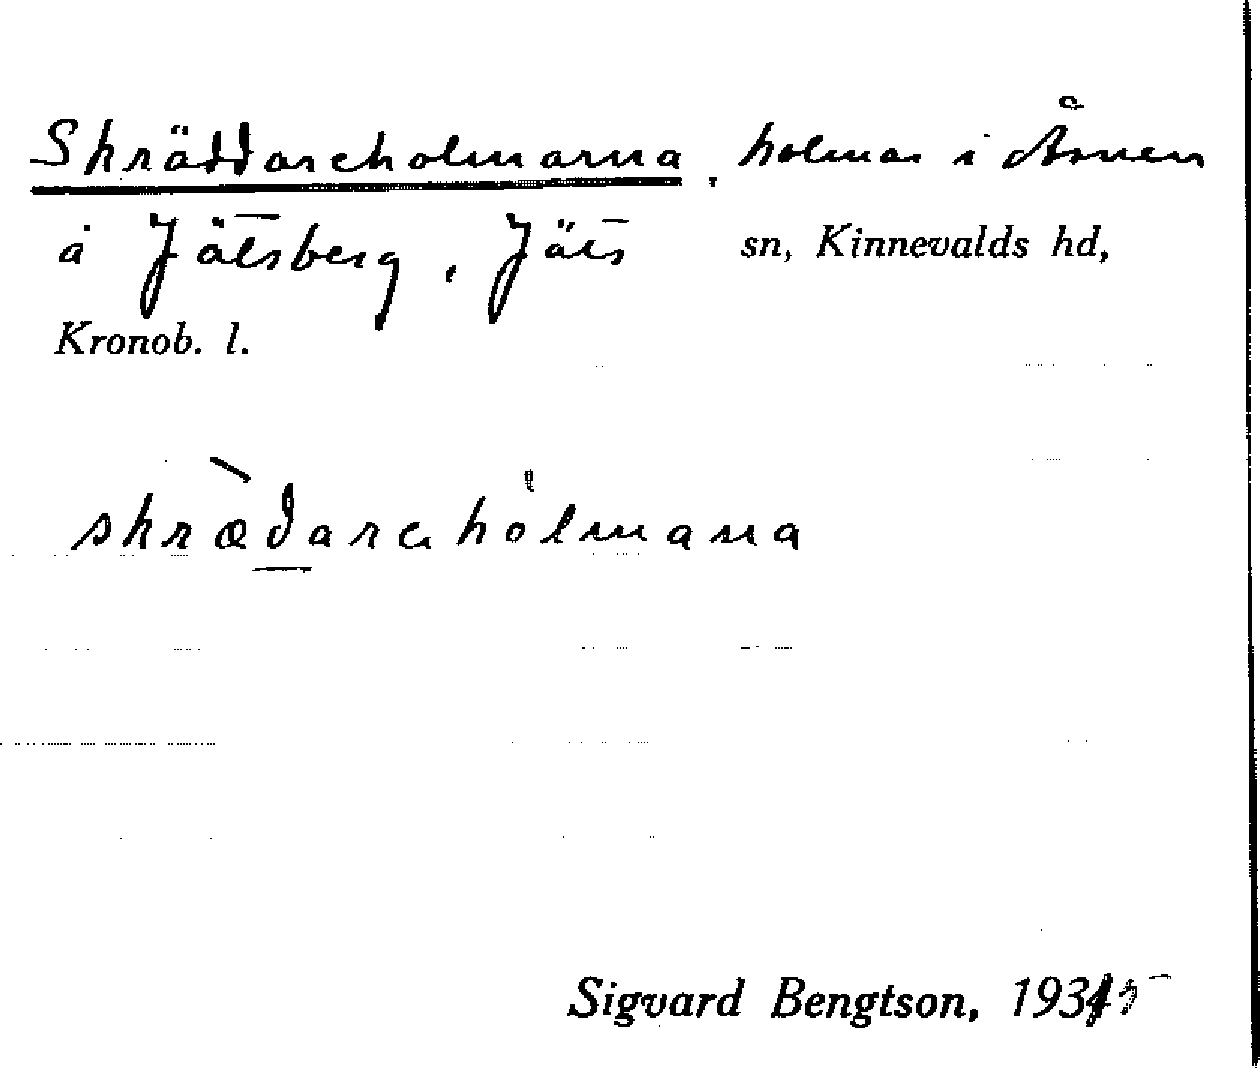 Skräddareholmarna, holmar i Åsnen
å Jätsberg, Jäts sn, Kinnevalds hd,
Kronob. l.
skrædarahòlmana
Sigvard Bengtson, 1935